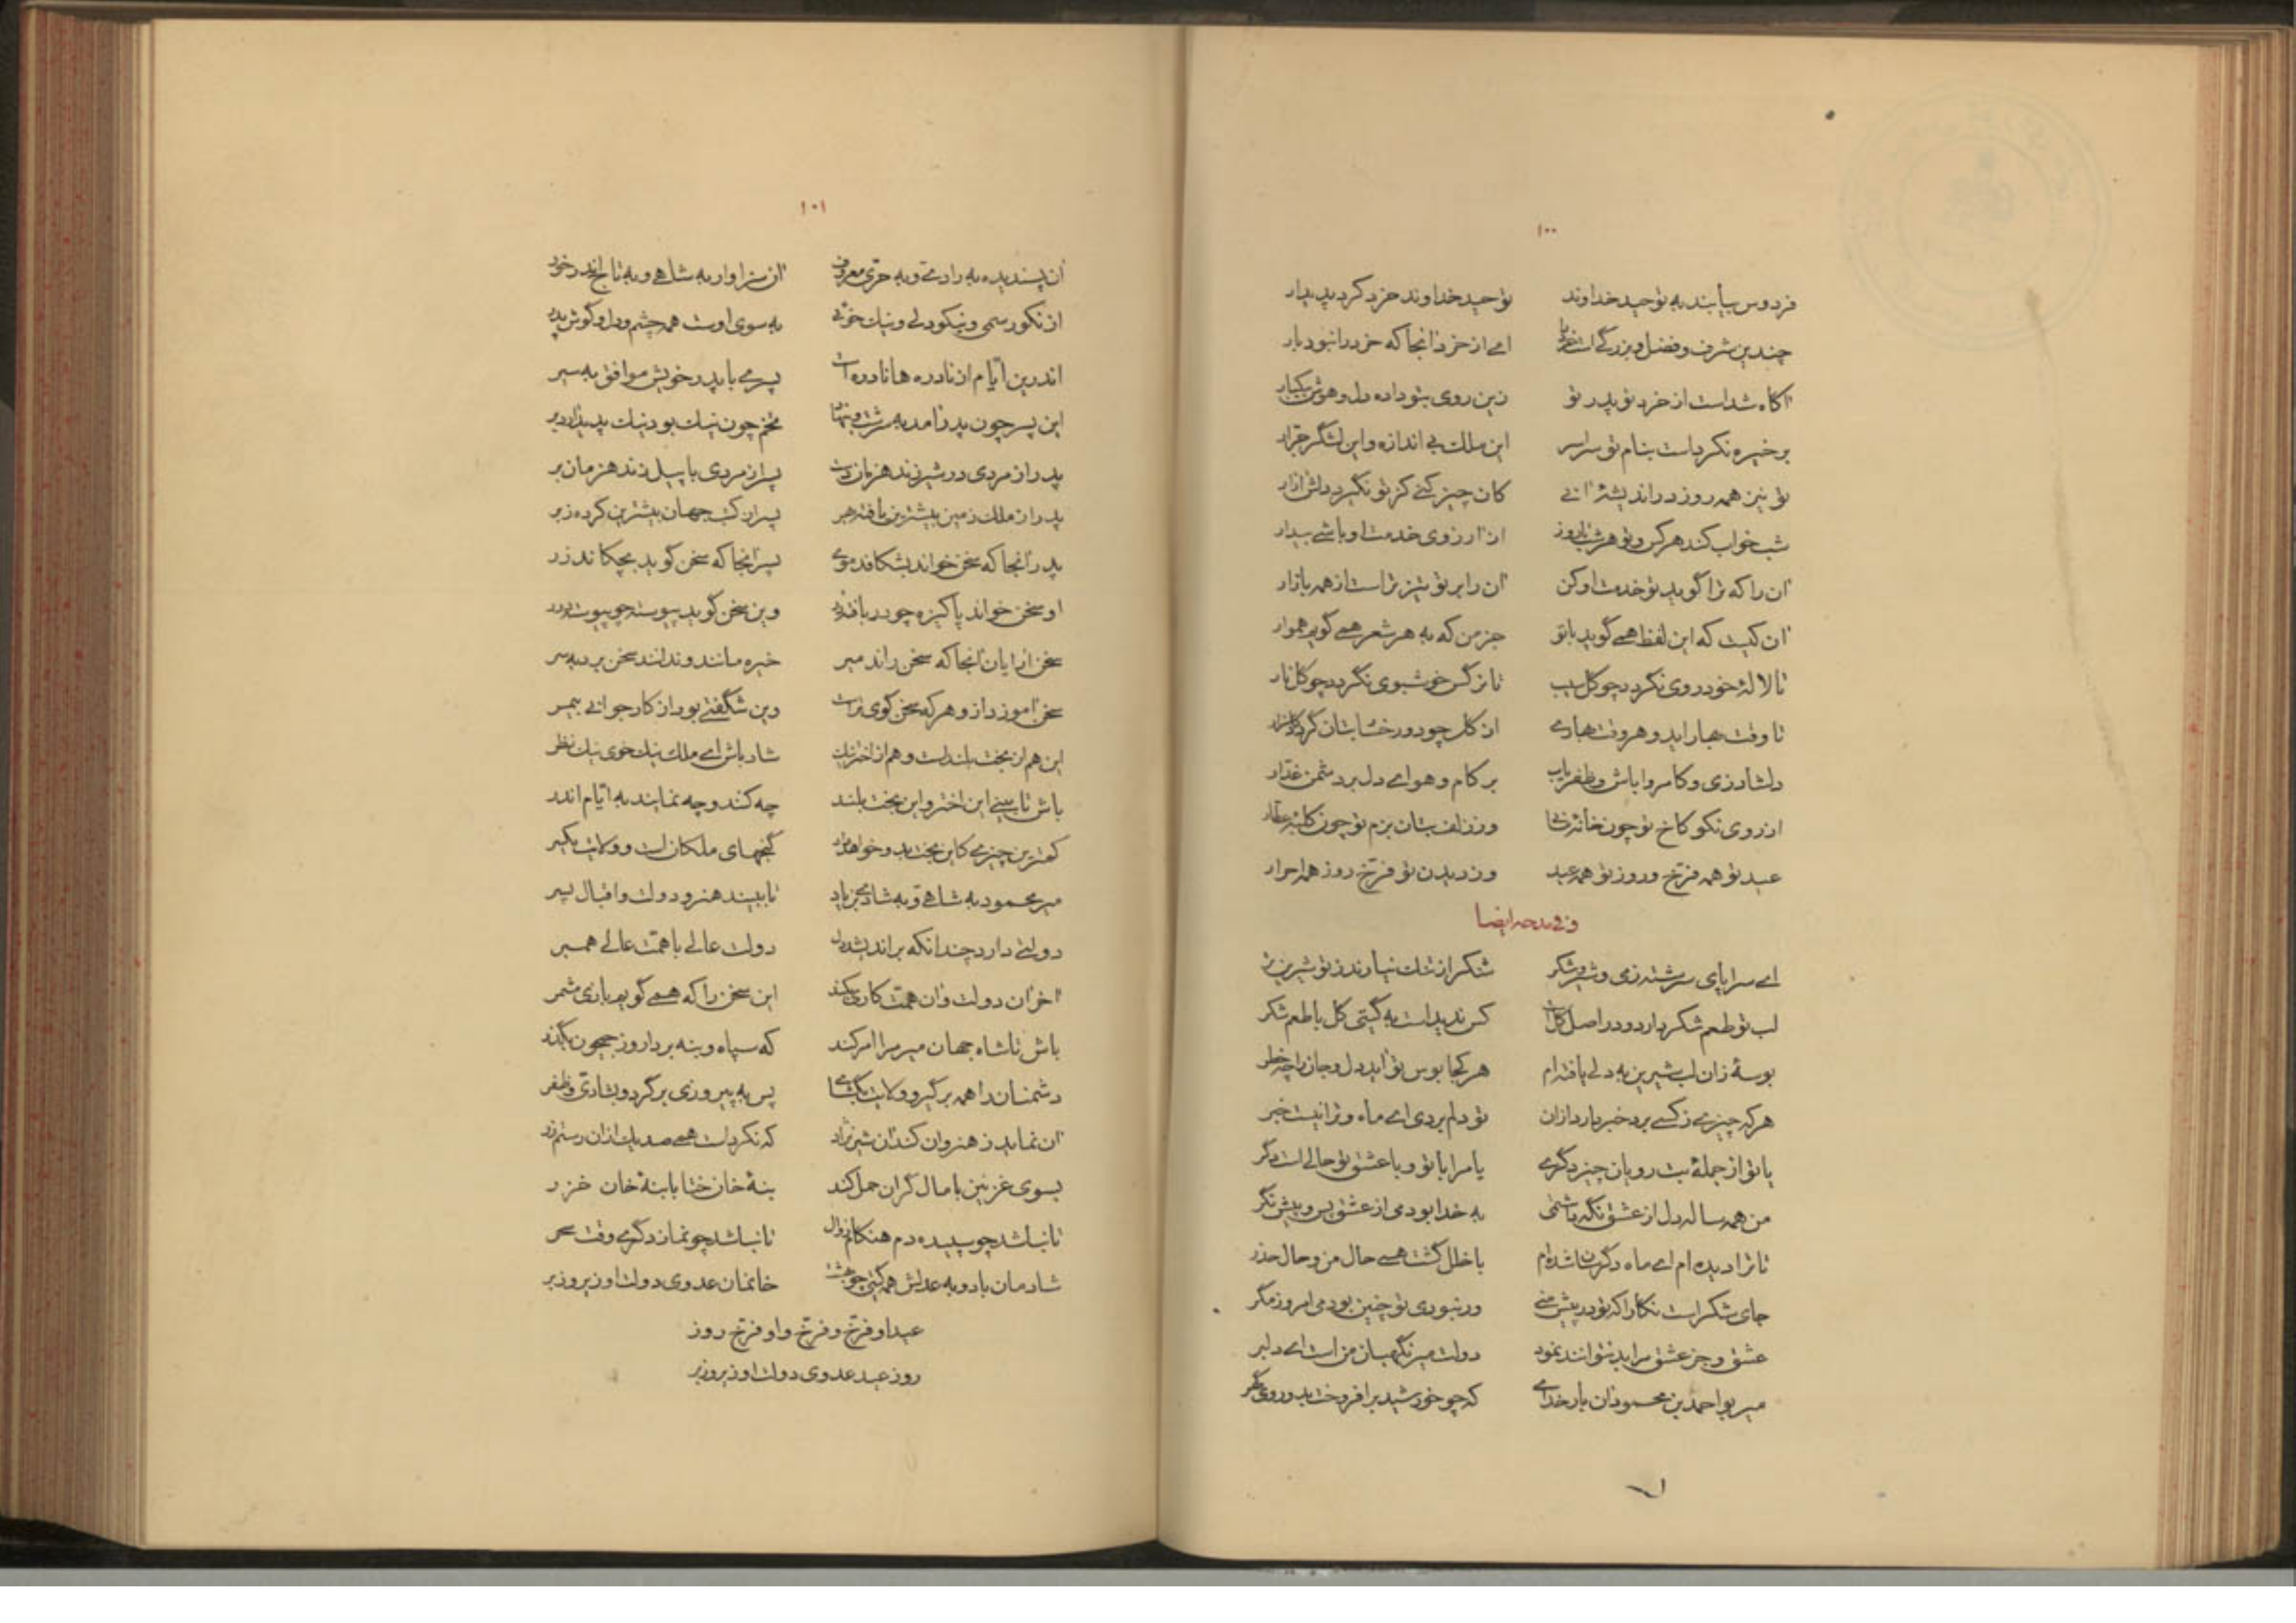 ۱۰۰
فردوس بیابند به توحید خداوند توحید خداوند خرد کرد پدیدار
چندین شرف و فضل و بزرگی است خرد را ای از خرد آنجا که خرد را نبود بار
آگاه شداست از خرد تو پدر تو زین روی بتو داده دل و هوش بیکبار
بر خیره نکرداست بنام تو سراسر این ملک بی اندازه و این لشگر جرار
تو نیز همه روز در اندیشهٔ آنی کان چیز کنی کز تو نگیرد دلش آزار
شب خواب کند هر کس و تو هر شب تا روز از آرزوی خدمت او باشی بیدار
آن را که ترا گوید تو خدمت او کن آن را بر تو تیز تر است از همه بازار
آن کیست که این لفظ همی گوید با تو جز من که به هر شعر همی گویم هموار
تا لالهٔ خودروی نگردد چو گل سیب تا نرگس خوشبوی نگردد چو گل نار
تا وقت بهار آید و هر وقت بهاری از گل چو دو رخسار بتان گردد گلزار
دلشاد زی و کامروا باش و ظفر یاب بر کام و هوای دل بر دشمن غدار
از روی نکو کاخ تو چون خانهٔ وز زلف بتان بزم تو چون کلبهٔ عطار
عید تو همه فرخ و روز تو همه عید وز دیدن تو فرخ روز همه احرار
و فی مدحه ایضا
ای سراپای سرشته ز می و شیر و شکر شکر از تنگ نیارند ز تو شیرین تر
لب تو طعم شکر دارد و در اصل گل است کس ندیداست به گیتی گل با طعم شکر
بوسهٔ زان لب شیرین به دلی یافته‌ام هر کجا بوس تو آید دل و جان را چه خطر
هر که چیزی ز کسی برد خبر دارد ازان تو دلم بردی ای ماه و ترا نیست خبر
یا تو از جملهٔ بت رویان چیز دگری یا مرا با تو و با عشق تو حالی است دگر
من همه ساله دل از عشق نگه داشتمی به خدا بودمی از عشق پس و پیش نگر
تا ترا دیده ام ای ماه دگرسان شده‌ام با خلل گشت همی حال من و حال حذر
جای شکر است نگارا که تو در پیش منی ور نبودی تو چنین بودمی امروز مگر
عشق و جز عشق مرا بد نتوانند نمود دولت میر نگهبان من است ای دلبر
میر بو احمد بن محمود آن بار خدای که چو خورشید برافروخت بدو روی گهر
۱۰۱
آن پسندیده به رادی و به حری معروف آن سزاوار به شاهی و به تاج اندر خور
از نکو رسمی و نیکودلی و نیک خوئی به سوی اوست همه چشم و دل و گوش پدر
اندرین ایام از نادره ها نادره است پسری با پدر خویش موافق به سیر
این پسر چون پدر آمد به سرشت و به نهاد تخم چون نیک بود نیک پدید آرد بر
پدر از مردی در شیر زند هزمان دست پسر از مردی با پیل زند هزمان بر
پدر از ملک زمین بیشترین یافته بهر پسر از کتب جهان بیشترین کرده ز بر
پدر آنجا که سخن خواند بشکافد موی پسر آنجا که سخن گوید بچکاند زر
او سخن خواند پاکیزه چو در بافته زر وین سخن گوید پیوسته چو پیوسته درر
سخن آرایان آنجا که سخن راند میر خیره مانند و ندانند سخن برد به سر
سخن آموزد ازو هر که سخن گوی تر است وین شگفتی بود از کار جوانی بیمر
این هم از بخت بلند است و هم از اختر نیک شاد باش ای ملک نیک خوی نیک نظر
باش تا بینی این اختر و این بخت بلند چه کند و چه نمایند به ایام اندر
کمترین چیزی کاین بخت بدو خواهد داد گنجهای ملکان است و ولایت یکسر
میر محمود به شاهی و به شادی بزیاد تا ببیند هنر و دولت و اقبال پسر
دولتی دارد چندانکه براندیشد دل دولت عالی با همت عالی همبر
آخر آن دولت و آن همت کاری بکند این سخن را که همی گویم بازی مشمر
باش تا شاه جهان میر مرا امر کند که سپاه و بنه بردار و ز جیحون بگذر
دشمنان را همه برگیر و ولایت بگشای پس به پیروزی برگرد و بشادی و ظفر
آن نماید ز هنر وان کند آن شیر نژاد که نکردست همی صد یک ازان رستم زر
بسوی غزنین با مال گران حمل کند بنهٔ خان ختا با بنهٔ خان خزر
تا نباشد چو سپیده دم هنگام زوال تا نباشد چو نماز دگری وقت سحر
شادمان باد و به عدلش همه گیتی چو بهشت خانمان عدوی دولت او زیر و زبر
عید او فرخ و فرخ و او فرخ روز
روز عید عدوی دولت او زیر و زبر